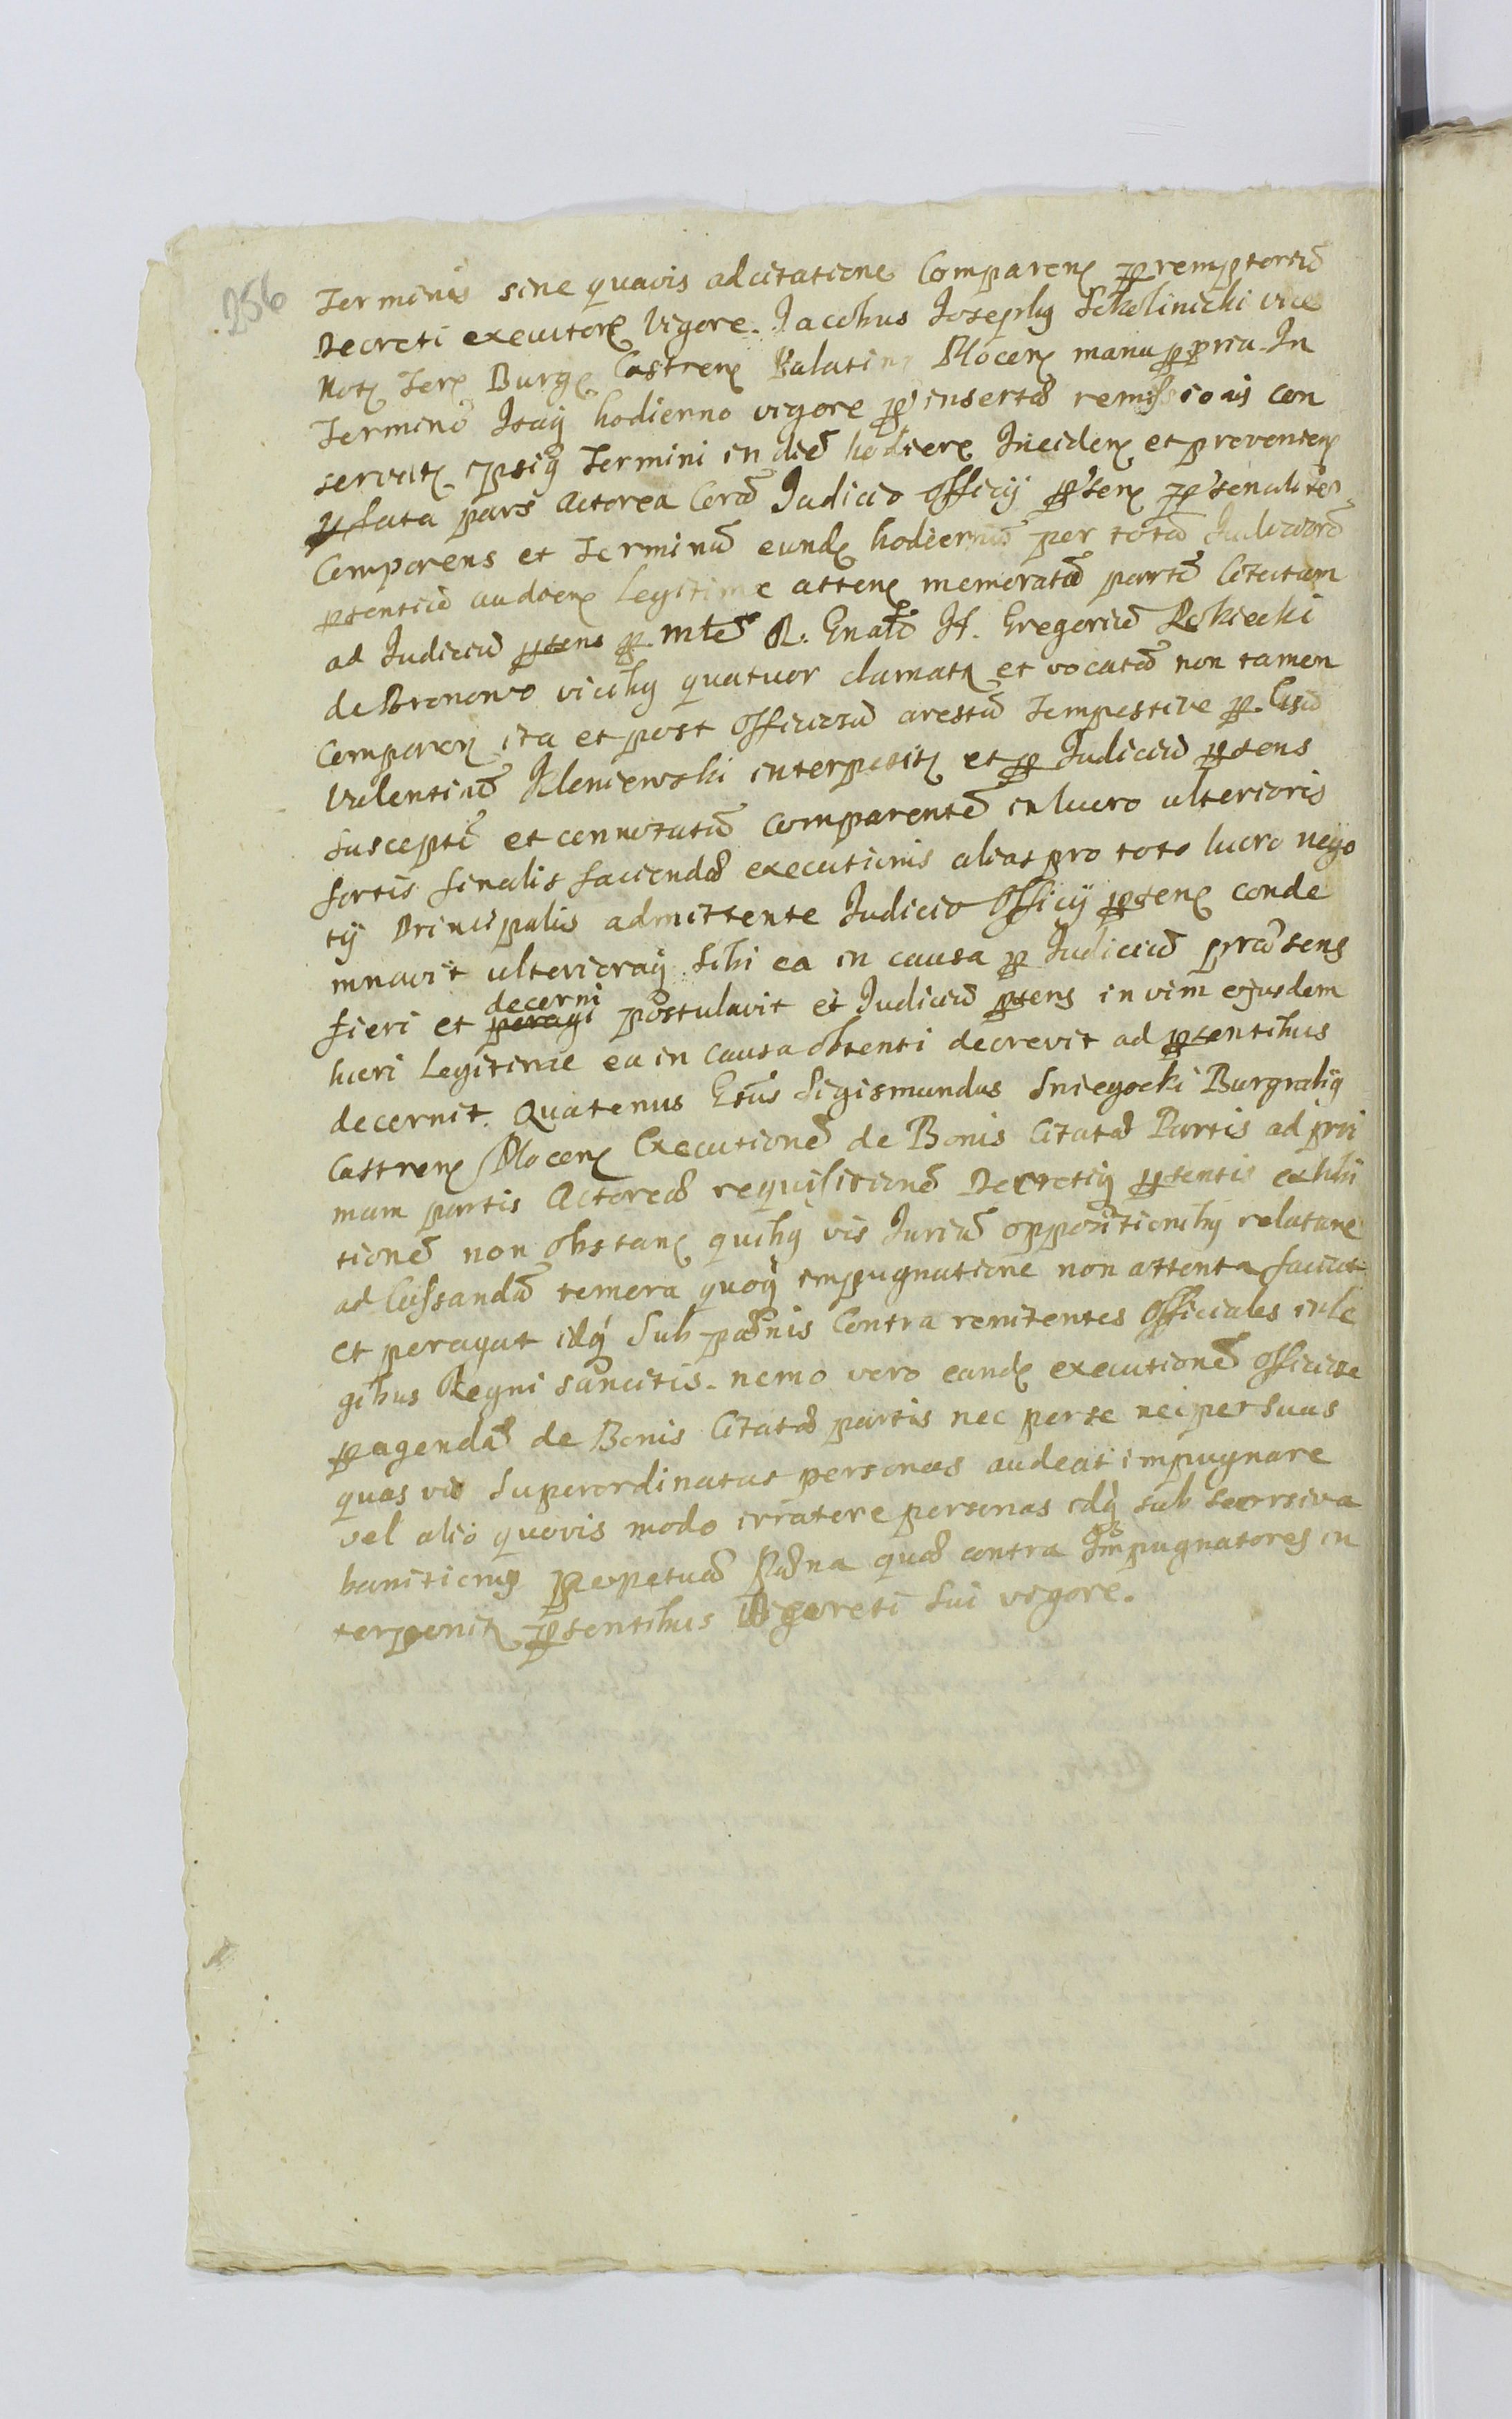 256
Terminis sine quavis adcitatione Comparen peremptoriu
Decreti executore Vigore. Jacobus Josephus Schelinicki vice
Not Ter Burg Castren Palatin Plocen manu ppria. In
Termino Itaq hodierno vigore pinsertæ remissionis con
servat ipsiq Termini in diē hodiern Inciden et provenien
pfata pars Actorea Corā Judicio Officij psen psonaliter
Comparens et Terminū eund hodiernū per totā Judiciorū
psentiā audien Legitime atten memoratā partē Citatam
ad Judiciū psens p mtē R. Gnalē H. Gregoriū Rokiecki
de Bronowo vicibq quatuor clamat et vocatā non tamen
Comparen ita et post Officiosū arestū Tempestive p.
Valentinū Kleniewski interposit et p Judiciū psens
Susceptū et connotatū Comparentē in lucro ulterioris
fortis finalis faciendæ executionis alias pro toto lucro nego
tij Principalis admittente Judicio Officij psen conde
mnavit ulterioraq sibi ea in causa p Judiciū præsens
fieri et decerni postulavit et Judiciū psens in vim ejusdem
lucri Legitime ea in causa obtenti decrevit ad psentibus
decernit. Quatenus Gsus Sigismundus Sniegocki Burgrabiq
Castren Plocen Executionē de Bonis Citatæ Partis ad pri
mam partis Actoreæ requisitionē Decretiq psentis exhibi
tionē non obstan quibq vis Juriū oppositionibq relatione
ad Cassandā temera quoq impugnatione non attenta faciat
et peragat idq Sub pœnis Contra renitentes Officiales in le
gibus Regni sancitis. nemo vero eand executionē Officiose
pagendā de Bonis Citatæ partis nec per se nec per suas
quas vis Superordinatas personas audeat impugnare
vel alio quovis modo irratere personas idq sub
banitionis Perpetuæ Pœna quæ contra Impugnatores in
terponit psentibus Decreti sui vigore.